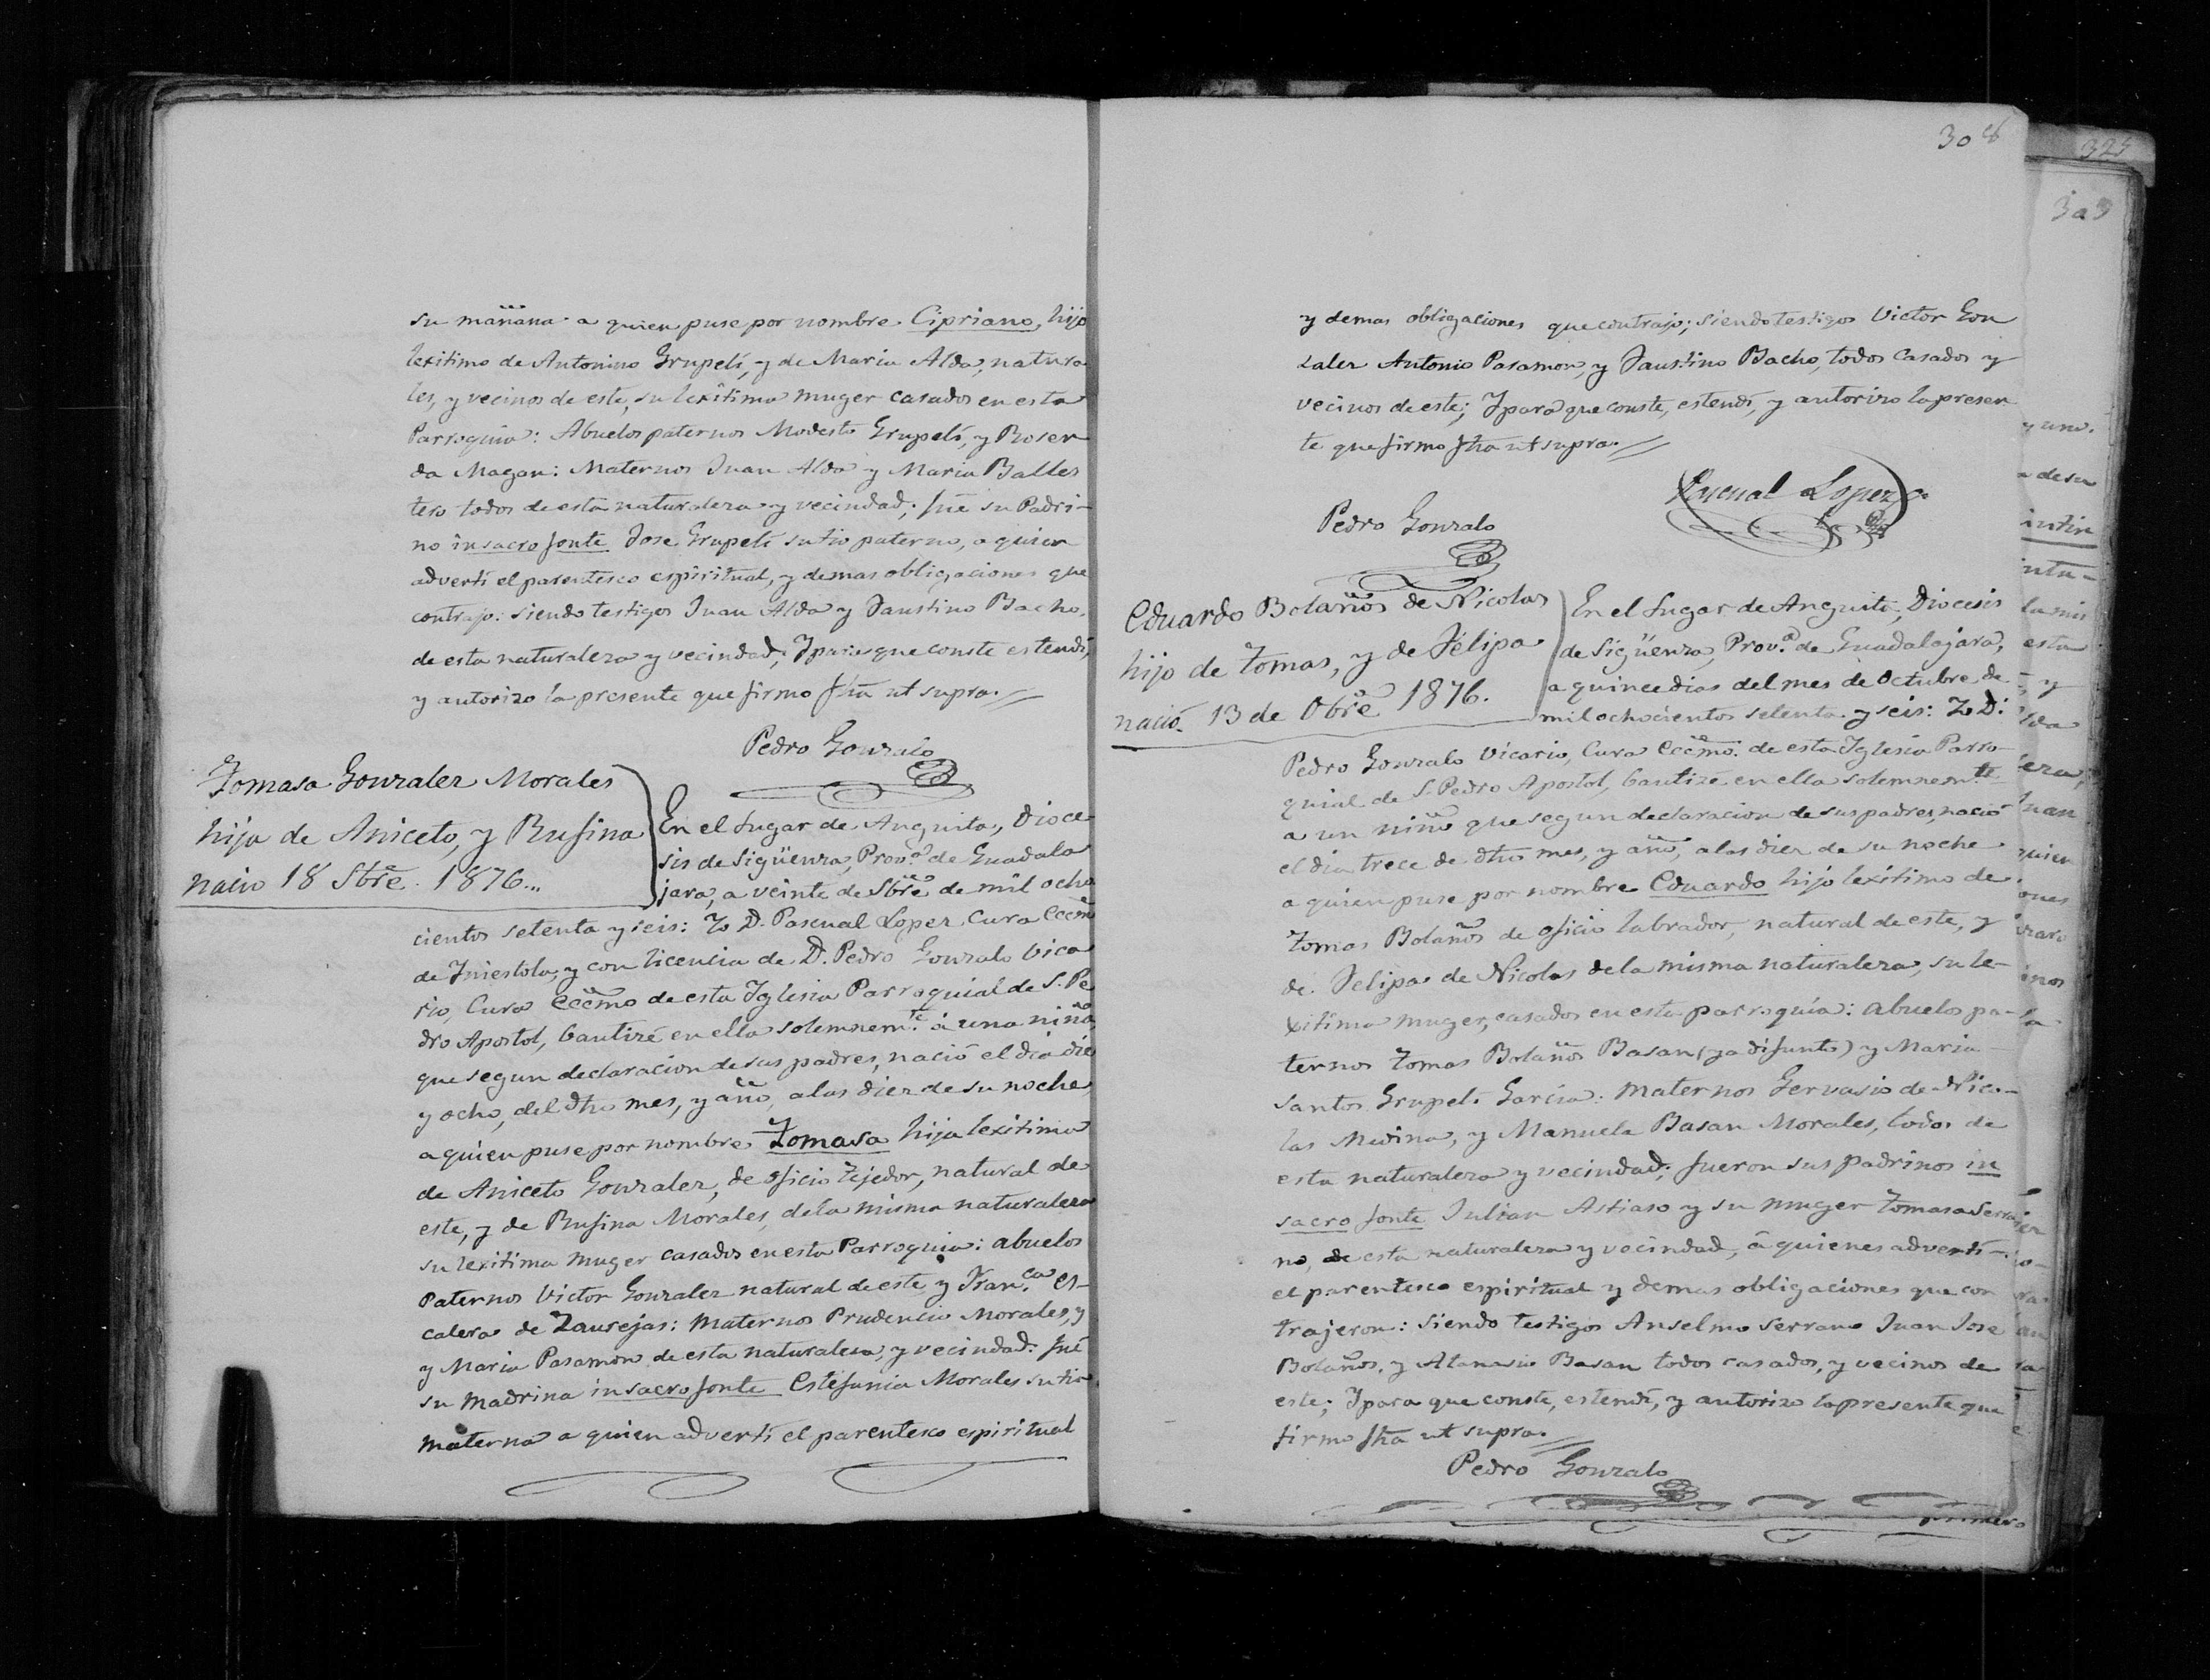 su mañana a quien puse por nombre Cipriano, hijo
lexitimo de Antonino Grupeli, y de Maria Alda, natura
les, y vecinos de este, su lexitima muger casados en esta
Parroquia: Abuelos paternos Modesto Grupeli, y Rosen
da Magan: Maternos Juan Alda y Maria Balles
tero todos de esta naturaleza y vecindad; fué su Padri-
no in sacro fonte Jose Grupeli su tio paterno, a quien
adverti el parentesco espiritual, y demas obligaciones que
contrajo: siendo testigos Juan Alda y Faustino Bacho,
de esta naturaleza y vecindad; Y para que conste estendi,
y autorizo la presente que firmo fha ut supra.=
Pedro Gonzalo
Tomasa Gonzalez Morales
hija de Aniceto, y Rufina
nacio 18 Sbre. 1876...
En el Lugar de Anguita, Dioce-
sis de Sigüenza, Prov.ª de Guadala
jara, a veinte de Sbre de mil ocho
cientos setenta y seis: Yo D. Pascual Lopez Cura Eccmo
de Iniestola, y con licencia de D. Pedro Gonzalo Vica
rio, Cura Eccmo de esta Yglesia Parroquial de S. Pe
dro Apostol, bautizé en ella solemnem.te á una niña,
que segun declaracion de sus padres, nació el dia diez
y ocho, del dho mes, y año, a las diez de su noche,
a quien puse por nombre Tomasa hija lexitima
de Aniceto Gonzalez, de oficio tejedor, natural de
este, y de Rufina Morales, de la misma naturaleza
su lexitima muger casados en esta Parroquia: abuelos
Paternos Victor Gonzalez natural de este y Fran.ca Es-
calera de Zaurejas: Maternos Prudencio Morales, y
y Maria Pasamon de esta naturaleza, y vecindad: fué
su Madrina in sacro fonte Estefania Morales su tia
Materna a quien adverti el parentesco espiritual
308
y demas obligaciones que contrajo; siendo testigos Victor Gon
zalez Antonio Pasamon, y Faustino Bacho, todos casados y
vecinos de este; Y para que conste, estendi, y autorizo la presen
te que firmo fha ut supra.=
Pascual Lopez
Pedro Gonzalo
Eduardo Bolaños de Nicolas
hijo de Tomas, y de Felipa
nació 13 de Obre 1876.
En el Lugar de Anguita, Diocesis
de Sigüenza, Prov.ª de Guadalajara,
a quince dias del mes de Octubre de
mil ochocientos setenta y seis: Yo D.
Pedro Gonzalo Vicario, Cura Eccmo. de esta Yglesia Parro-
quial de S. Pedro Apostol, bautizé en ella solemnem.te
a un niño que segun declaracion de sus padres, nació
el dia trece de dho mes, y año, a las diez de su noche
a quien puse por nombre Eduardo hijo lexitimo de
Tomas Bolaños de oficio labrador, natural de este, y
de Felipa de Nicolas de la misma naturaleza, su le-
xitima muger, casados en esta parroquia: abuelos pa-
ternos Tomas Bolaños Basan (ya difunto) y Maria
Santos Grupeli Garcia: Maternos Gervasio de Nico-
las Medina, y Manuela Basan Morales, todos de
esta naturaleza y vecindad; fueron sus padrinos in
sacro fonte Julian Astiaso y su muger Tomasa Serra
no, de esta naturaleza y vecindad, á quienes adverti-
el parentesco espiritual y demas obligaciones que con
trajeron: siendo testigos Anselmo Serrano Juan Jose
Bolaños, y Atanasio Basan todos casados, y vecinos de
este; Y para que conste, estendi, y autorizo la presente que
firmo fha ut supra.=
Pedro Gonzalo